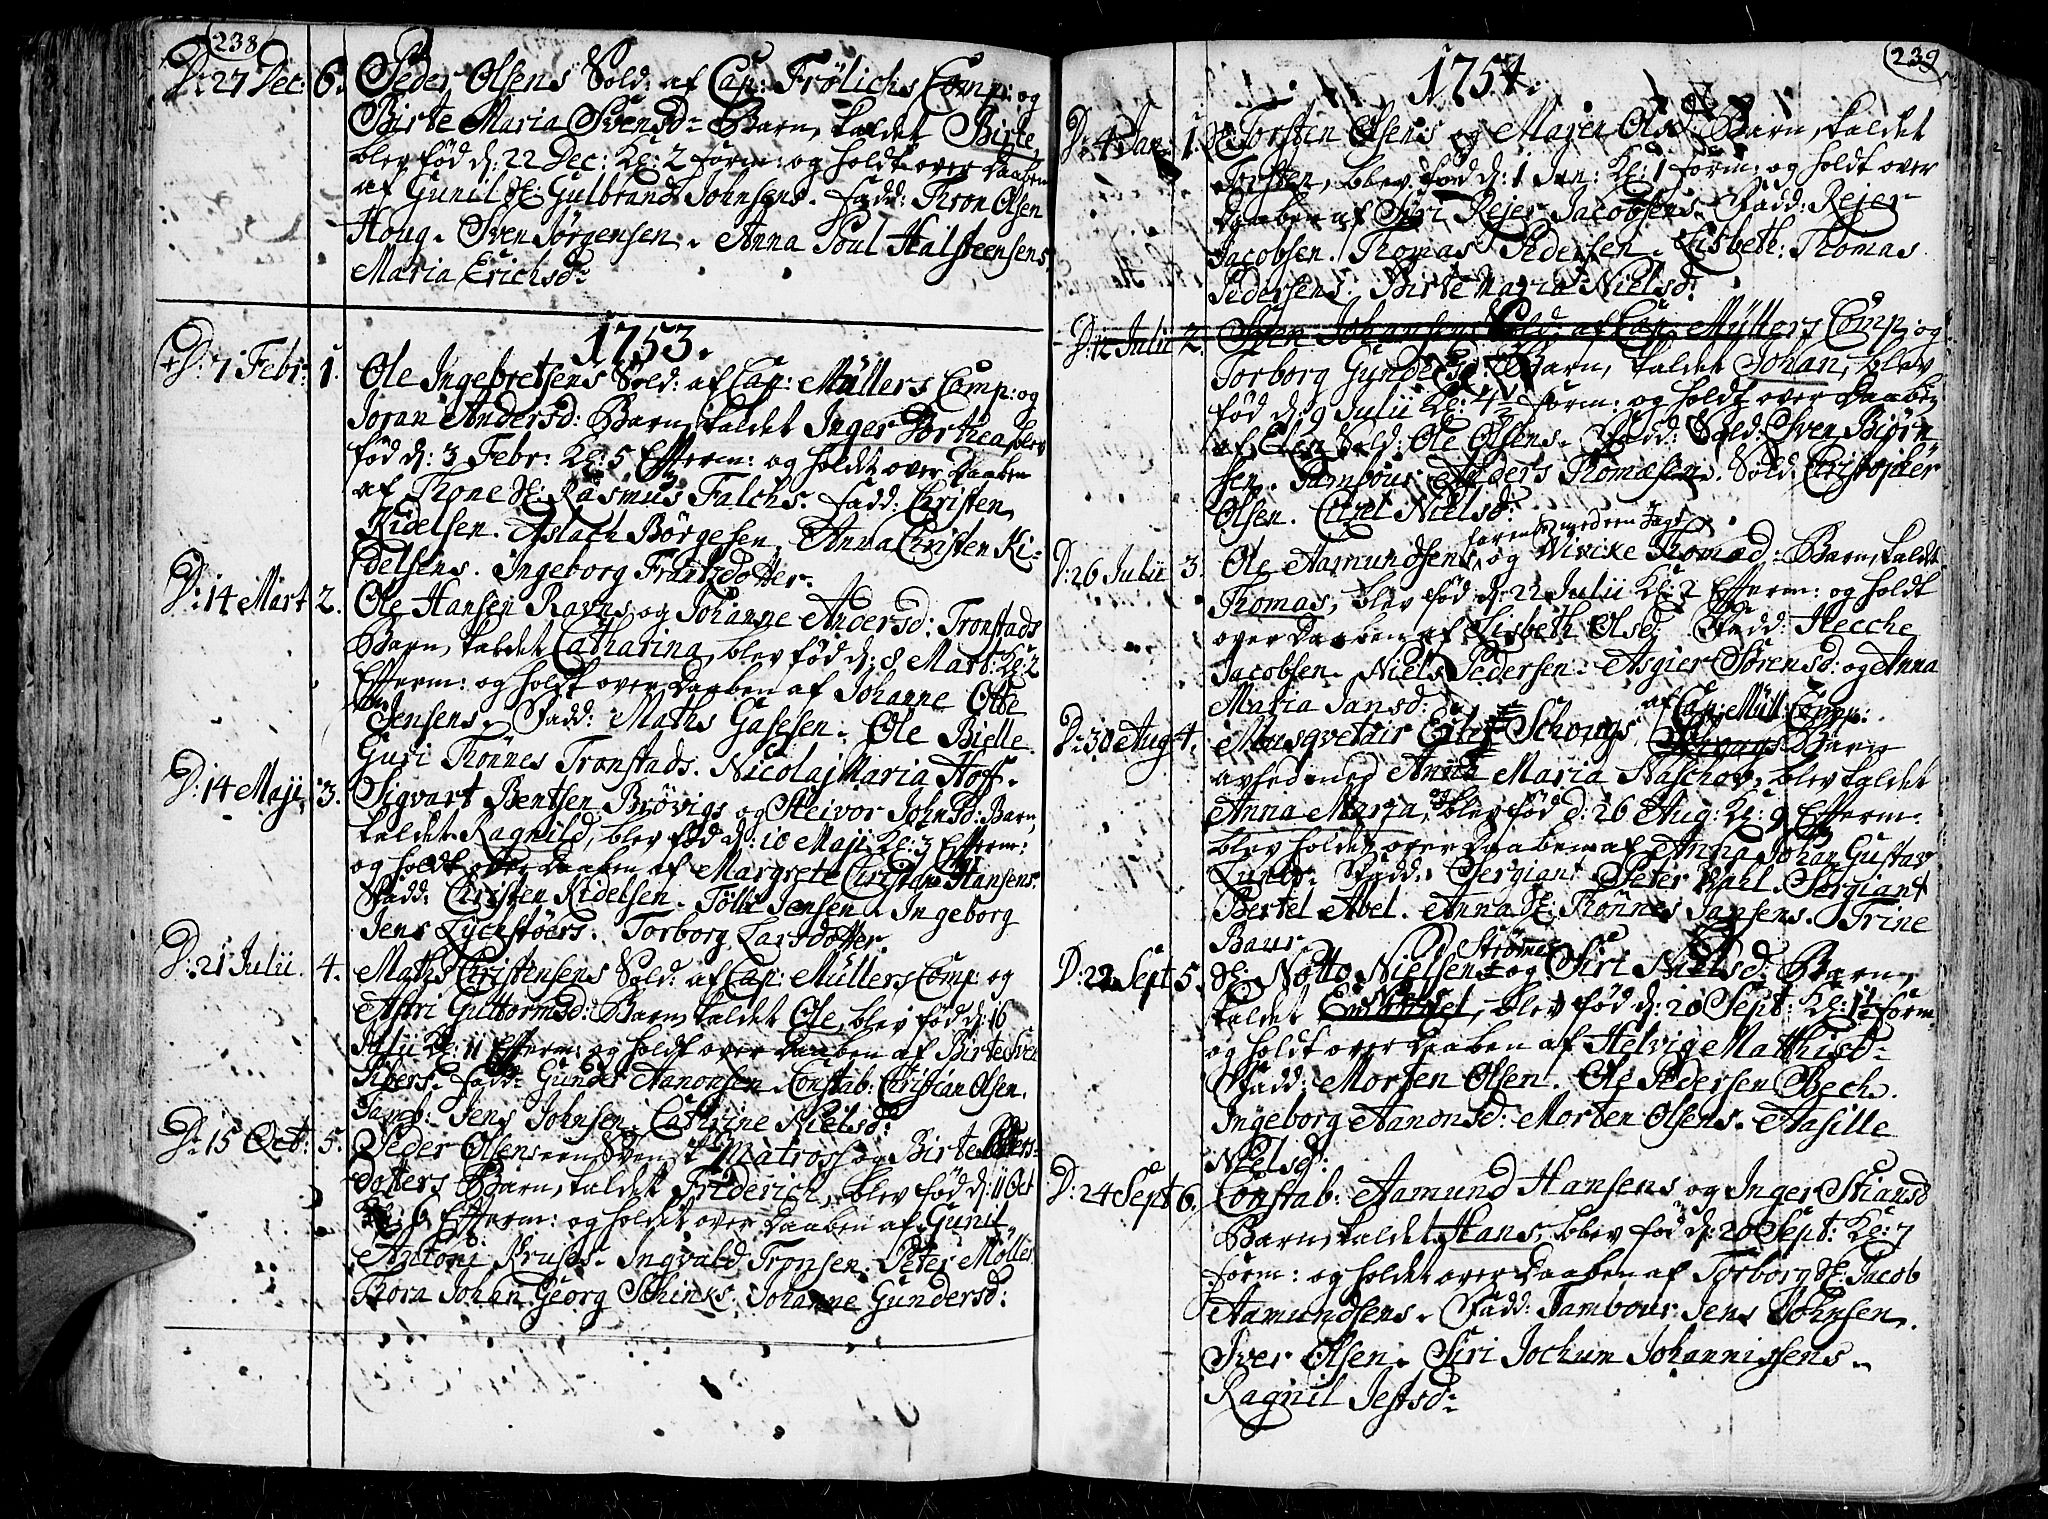 238
D: 27 Dec: 6. Peder Olsens Sold: af Cap: Frølichs Comp: og
Birte Maria Svensd: Barn, kaldet Birte,
blev fød d: 22 Dec: Kl: 2 form: og holdt over Daaben
af Gunil Sl: Gulbrand Johnsens. fadd: Tron Olsen
Houg. Sven Jørgensen. Anna Poul Halsteensens
Maria Erichsd:
1753.
D: 7 Febr: 1. Ole Ingebretsens Sold: af Cap: Müllers Comp: og
Joran Andersd: Barn, kaldet Inger Dorthea, blev
fød d: 3 Febr: Kl: 5 Efterm: og holdt over Daaben
af Trone Sl: Rasmus Falchs. fadd: Christen
Kidelsen. Aslach Børgesen. Anna Christen Ki-
delsens. Ingeborg Frantzdotter.
D: 14 Mart 2. Ole Hansen Ravns og Johanne Andersd: Tronstads
Barn, kaldet Catharina, blev fød d: 8 Mart: Kl: 2
Efterm: og holdt over Daaben af Johanne Ebbe
Jensens. Fadd: Maths Gasesen. Ole Bielle.
Guri Tönnes Tronstads. Nicolaj Maria Hoff.
D: 14 Maji 3. Sigvart Bentsen Brøvigs og Steivor Johnsd: Barn,
kaldet Ragnild, blev fød d: 10 Maji Kl: 3 Efterm:
og holdt over Daaben af Margrete Christen Hansens.
Fadd: Christen Kidelsen. Tölle Jensen. Ingeborg
Jens Lychstöers. Torborg Larsdotter.
D: 21 Julii. 4. Maths Christensens Sold: af Cap: Müllers Comp og
Astri Guttormsd: Barn, kaldet Ole, blev fød d: 16
Julii Kl: 11 Efterm: og holdt over Daaben af Birte Sven
Fibers. Fadd: Gunder Aanonsen. Constab: Christian Olsen.
Tamb: Jens Johnsen. Cathrine Nielsd:
D: 15 Oct: 5. Peder Olsens en Svensk Matros og Birte
dotters Barn, kaldet Friderich, blev fød d: 11 Oct
Kl: 6 Efterm: og holdet over Daaben af Gunil
Antonj Kruses. Ingvald Tronsen. Peter Møller
Thora Johan Georg Schinks. Johanne Gundersd:
239
1754.
D: 4 Jan: 1. Sl: Torsten Olsens og Maren Olsd: Barn, kaldet
Torsten, blev fød d: 1 Jan: Kl: 1 form: og holdt over
Daaben af Siri Rejer Jacobsens. Fadd: Rejer
Jacobsen. Thomas Pedersen. Lisbeth: Thomas
Pedersens. Birte Maria Nielsd:
D: 12 Julii 2. Sven Johansens Sold: af Cap: Müllers Comp: og
Torborg Gundersd: Barn, kaldet Johan, blev
fød d: 9 Julii Kl: 4 1/2 form: og holdt over Daaben
af Elen Sold: Ole Olsens. Fadd: Sold: Sven Biørn-
sen. Tambour Anders Thomæsen. Sold: Christopher
Olsen. Cicel Nielsd:
med een Jagt
D: 26 Julii 3. Ole Aamundsens og Wivike Thomæd: Barn, kaldet
Thomas, blev fød d: 22 Julii Kl: 2 Efterm: og holdt
over Daaben af Lisbeth Olsd: Fadd: Hecche
Jacobsen. Niels Pedersen. Asgier Sörensd: og Anna
Maria Jansd:
af Cap: Müll: Comp:
D: 30 Aug 4. Mousqvetair Eilert Schougs Barn
avled med Anna Maria Naschov, blev kaldet
Anna Maria, og blev fød d: 26 Aug: Kl: 9 Efterm.
blev holdet over Daaben af Anna Johan Gustav
Lunds. Fadd: Sergiant Peter Wahl. Sergiant
Bertel Abel. Anna Sl: Tönnes Jansens. Trine
Baur
Strømme
D: 22 Sept 5. Sl: Notto Nielsens og Siri Nielsd: Barn,
kaldet Niels, blev fød d: 20 Sept: Kl: 1 1/2 form:
og holdt over Daaben af Helvig Matthisd:
Fadd: Morten Olsen. Ole Pedersen Bech.
Ingeborg Aanonsd: Morten Olsens. Aasille
Nielsd:
D: 24 Sept 6. Constab: Aamund Hansens og Inger Stiansd
Barn, kaldet Hans, blev fød d: 20 Sept: Kl: 7
form: og holdet over Daaben af Torborg Sl: Jacob
Aamundsens. Fadd: Tambour Jens Johnsen.
Iver Olsen. Siri Jochum Johannissens.
Ragnil Jestsd: